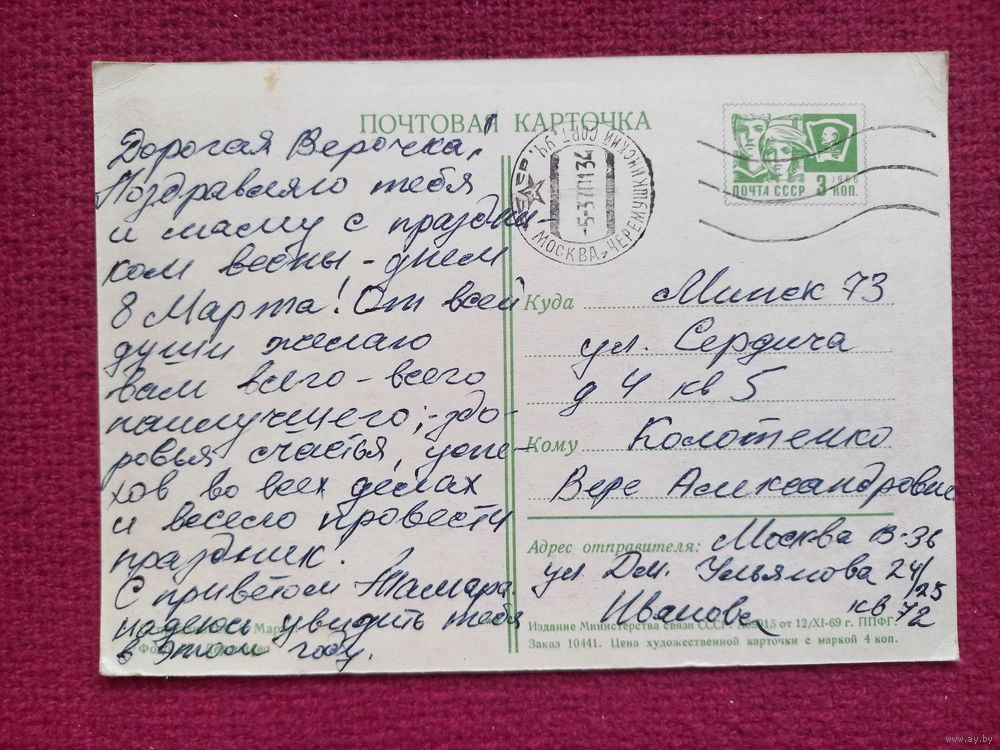 ПОЧТОВАЯ КАРТОЧКА
Дорогая Верочка,
Поздравляю тебя
и маму с праздни-
ком весны - днем
8 Марта! От всей
души желаю
вам всего-всего
наилучшего; - здо-
ровья счастья, успе-
хов во всех делах
и весело провести
праздник.
С приветом Тамара.
надеюсь увидеть тебя
в этом году.
МОСКВА, ЧЕРЕМУШКИНСКИЙ СОРТ. УЧ.
ПОЧТА СССР 3 КОП.
1966
Куда Минск 73
ул. Сердича
д 4 кв 5
Кому Колотенко
Вере Александровне
Адрес отправителя: Москва В-36
ул Дм. Ульянова 24/25
Иванова кв 72
Издание Министерства связи СССР. от 12/XI-69 г. ППФГ.
Заказ 10441. Цена художественной карточки с маркой 4 коп.
www.ay.by